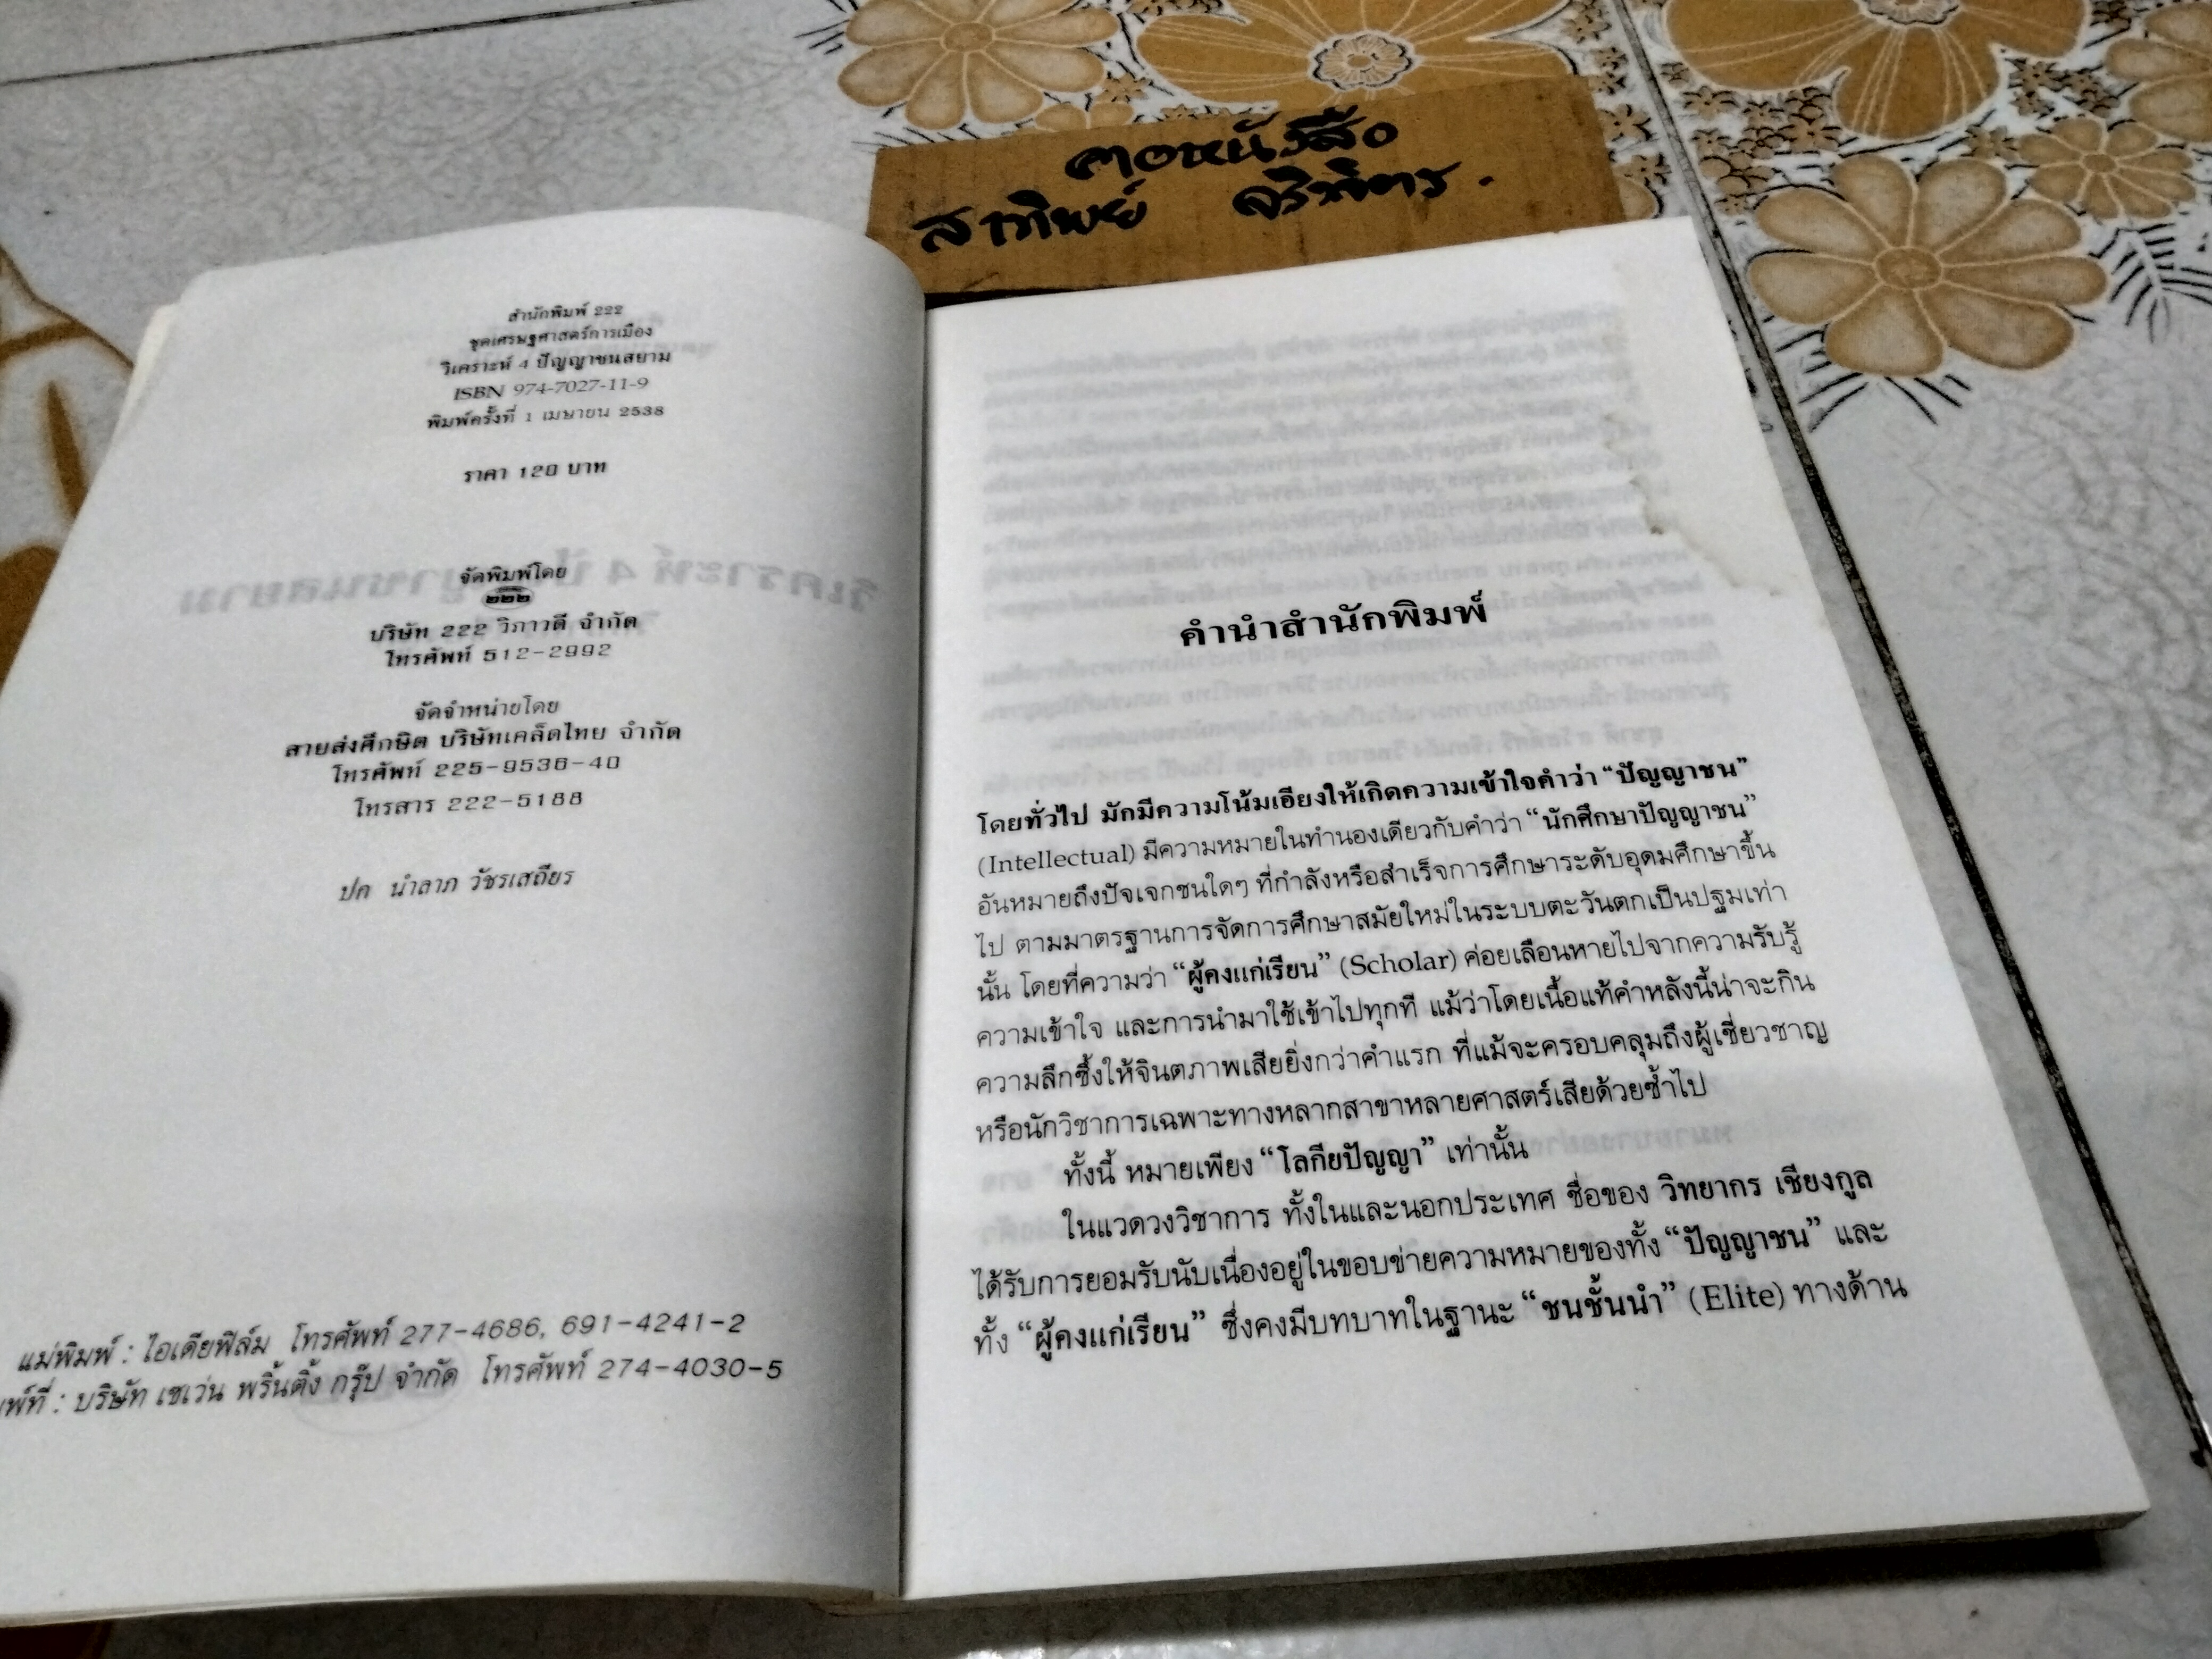 คอหนังสือ
สาทิพย์
สำนักพิมพ์ 222
ชุดเศรษฐศาสตร์การเมือง
วิเคราะห์ 4 ปัญญาชนสยาม
ISBN 974-7027-11-9
พิมพ์ครั้งที่ 1 เมษายน 2538
ราคา 120 บาท
จัดพิมพ์โดย
๒๒๒
บริษัท 222 วิภาวดี จำกัด
โทรศัพท์ 512-2992
จัดจำหน่ายโดย
สายส่งศึกษิต บริษัทเคล็ดไทย จำกัด
โทรศัพท์ 225-9536-40
โทรสาร 222-5188
ปก นำลาภ วัชรเสถียร
แม่พิมพ์ : ไอเดียฟิล์ม โทรศัพท์ 277-4686, 691-4241-2
พ์ที่ : บริษัท เซเว่น พริ้นติ้ง กรุ๊ป จำกัด โทรศัพท์ 274-4030-5
คำนำสำนักพิมพ์
โดยทั่วไป มักมีความโน้มเอียงให้เกิดความเข้าใจคำว่า “ปัญญาชน”
(Intellectual) มีความหมายในทำนองเดียวกับคำว่า “นักศึกษาปัญญาชน”
อันหมายถึงปัจเจกชนใดๆ ที่กำลังหรือสำเร็จการศึกษาระดับอุดมศึกษาขึ้น
ไป ตามมาตรฐานการจัดการศึกษาสมัยใหม่ในระบบตะวันตกเป็นปฐมเท่า
นั้น โดยที่ความว่า “ผู้คงแก่เรียน” (Scholar) ค่อยเลือนหายไปจากความรับรู้
ความเข้าใจ และการนำมาใช้เข้าไปทุกที แม้ว่าโดยเนื้อแท้คำหลังนี้น่าจะกิน
ความลึกซึ้งให้จินตภาพเสียยิ่งกว่าคำแรก ที่แม้จะครอบคลุมถึงผู้เชี่ยวชาญ
หรือนักวิชาการเฉพาะทางหลากสาขาหลายศาสตร์เสียด้วยซ้ำไป
ทั้งนี้ หมายเพียง “โลกียปัญญา” เท่านั้น
ในแวดวงวิชาการ ทั้งในและนอกประเทศ ชื่อของ วิทยากร เชียงกูล
ได้รับการยอมรับนับเนื่องอยู่ในขอบข่ายความหมายของทั้ง “ปัญญาชน” และ
ทั้ง “ผู้คงแก่เรียน” ซึ่งคงมีบทบาทในฐานะ “ชนชั้นนำ” (Elite) ทางด้าน